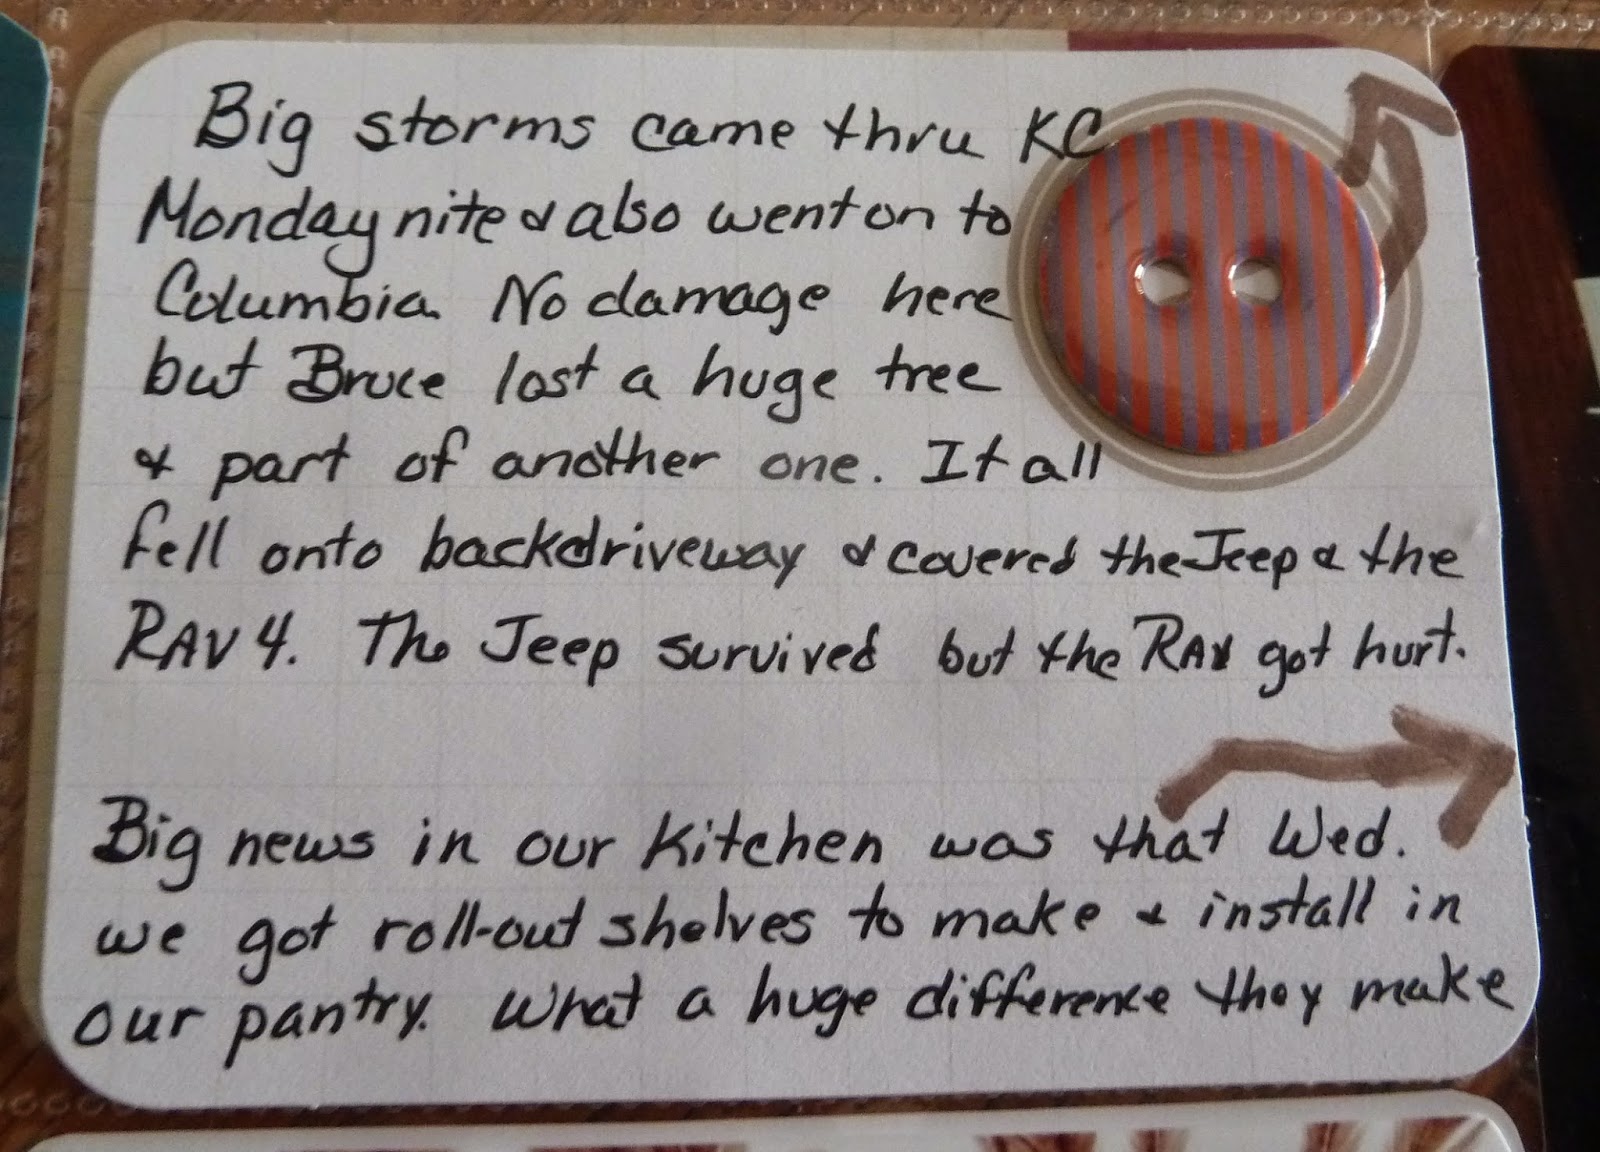 Big storms came thru KC
Monday nite & also went on to
Columbia. No damage here
but Bruce lost a huge tree
& part of another one. It all
fell onto backdriveway & covered the Jeep & the
RAV 4. The Jeep survived but the RAV got hurt.
Big news in our kitchen was that Wed.
we got roll-out shelves to make & install in
our pantry. What a huge difference they make